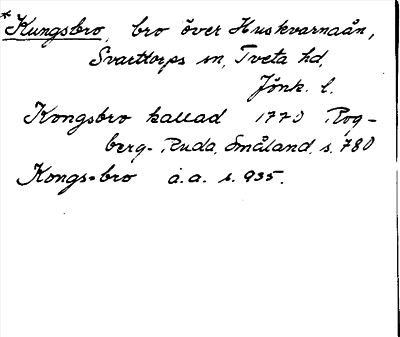 *Kungsbro, bro över Huskvarnaån,
Svarttorps sn, Tveta hd,
Jönk. l.
Kongsbro kallad 1770 Rog-
berg-Ruda, Småland, s. 780
Kongs-bro a.a. s. 935.